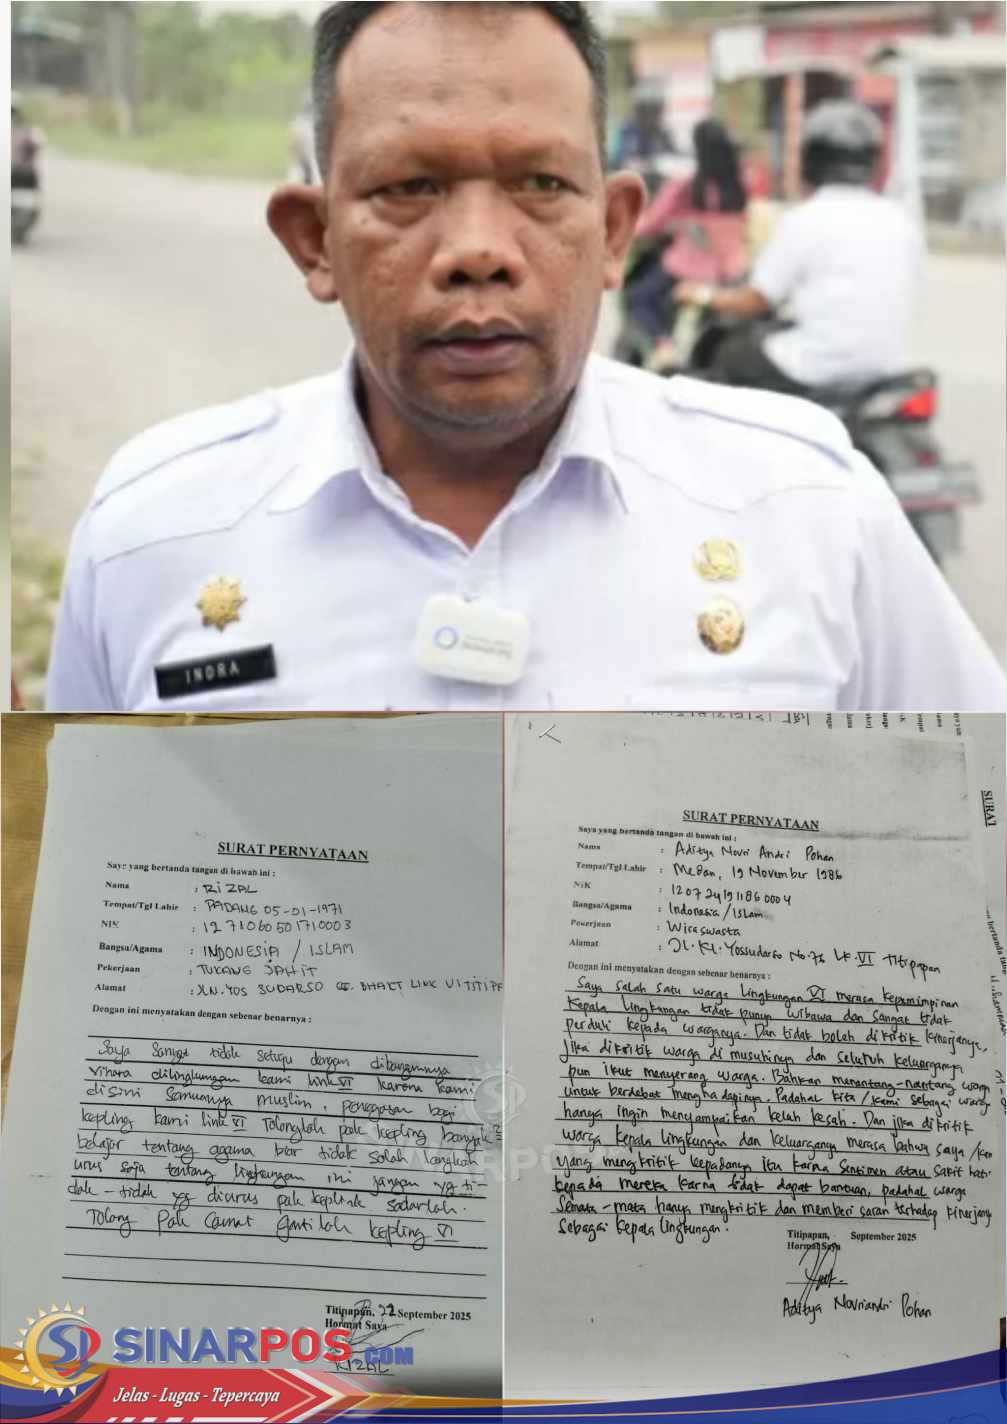 INDRA
SURAT PERNYATAAN
Saya yang bertanda tangan di bawah ini :
Nama : RIZAL
Tempat/Tgl Lahir : PADANG 05-01-1971
NIK : 1271060501710003
Bangsa/Agama : INDONESIA / ISLAM
Pekerjaan : TUKANG JAHIT
Alamat : JLN. YOS SUDARSO BHAKTI LINK VI TITI P
Dengan ini menyatakan dengan sebenar benarnya :
Saya sangat tidak setuju dengan dibangunnya
vihara dilingkungan kami link VI karena kami
disini semuanya muslim, penegasan bagi
kepling kami link VI Tolonglah pak kepling banyak2
belajar tentang agama biar tidak salah langkah
urus saja tentang lingkungan ini jangan yg ti-
dak-tidak yg diurus pak sadarlah.
Tolong Pak Camat gantilah kepling VI
Titipapan, 22 September 2025
Hormat Saya
RIZAL
SURAT PERNYATAAN
Saya yang bertanda tangan di bawah ini :
Nama : Aditya Novri Andri Pohan
Tempat/Tgl Lahir : Medan, 19 November 1986
NIK : 1207241911860004
Bangsa/Agama : Indonesia / Islam
Pekerjaan : Wiraswasta
Alamat : Jl. Kl. Yossudarso No. 76 Lk. VI Titipapan
Dengan ini menyatakan dengan sebenar benarnya :
Saya salah satu warga lingkungan VI merasa kepemimpinan
kepala lingkungan tidak punya wibawa dan sangat tidak
perduli kepada warganya. Dan tidak boleh di kritik kinerjanya,
jika dikritik warga di musuhinya dan seluruh keluarganya
pun ikut menyerang warga. Bahkan menantang-nantang warga
untuk berdebat menghadapinya. Padahal kita / kami sebagai warga
hanya ingin menyampaikan keluh kesah. Dan jika di kritik
warga kepala lingkungan dan keluarganya merasa bahwa saya / kami
yang mengkritik kepadanya itu karna sentimen atau sakit hati
kepada mereka karna tidak dapat bantuan, padahal warga
semata-mata hanya mengkritik dan memberi saran terhadap kinerjanya
sebagai kepala lingkungan.
Titipapan, September 2025
Hormat Saya
Aditya Novriandri Pohan
SURAT
SINARPOS.COM
Jelas - Lugas - Tepercaya